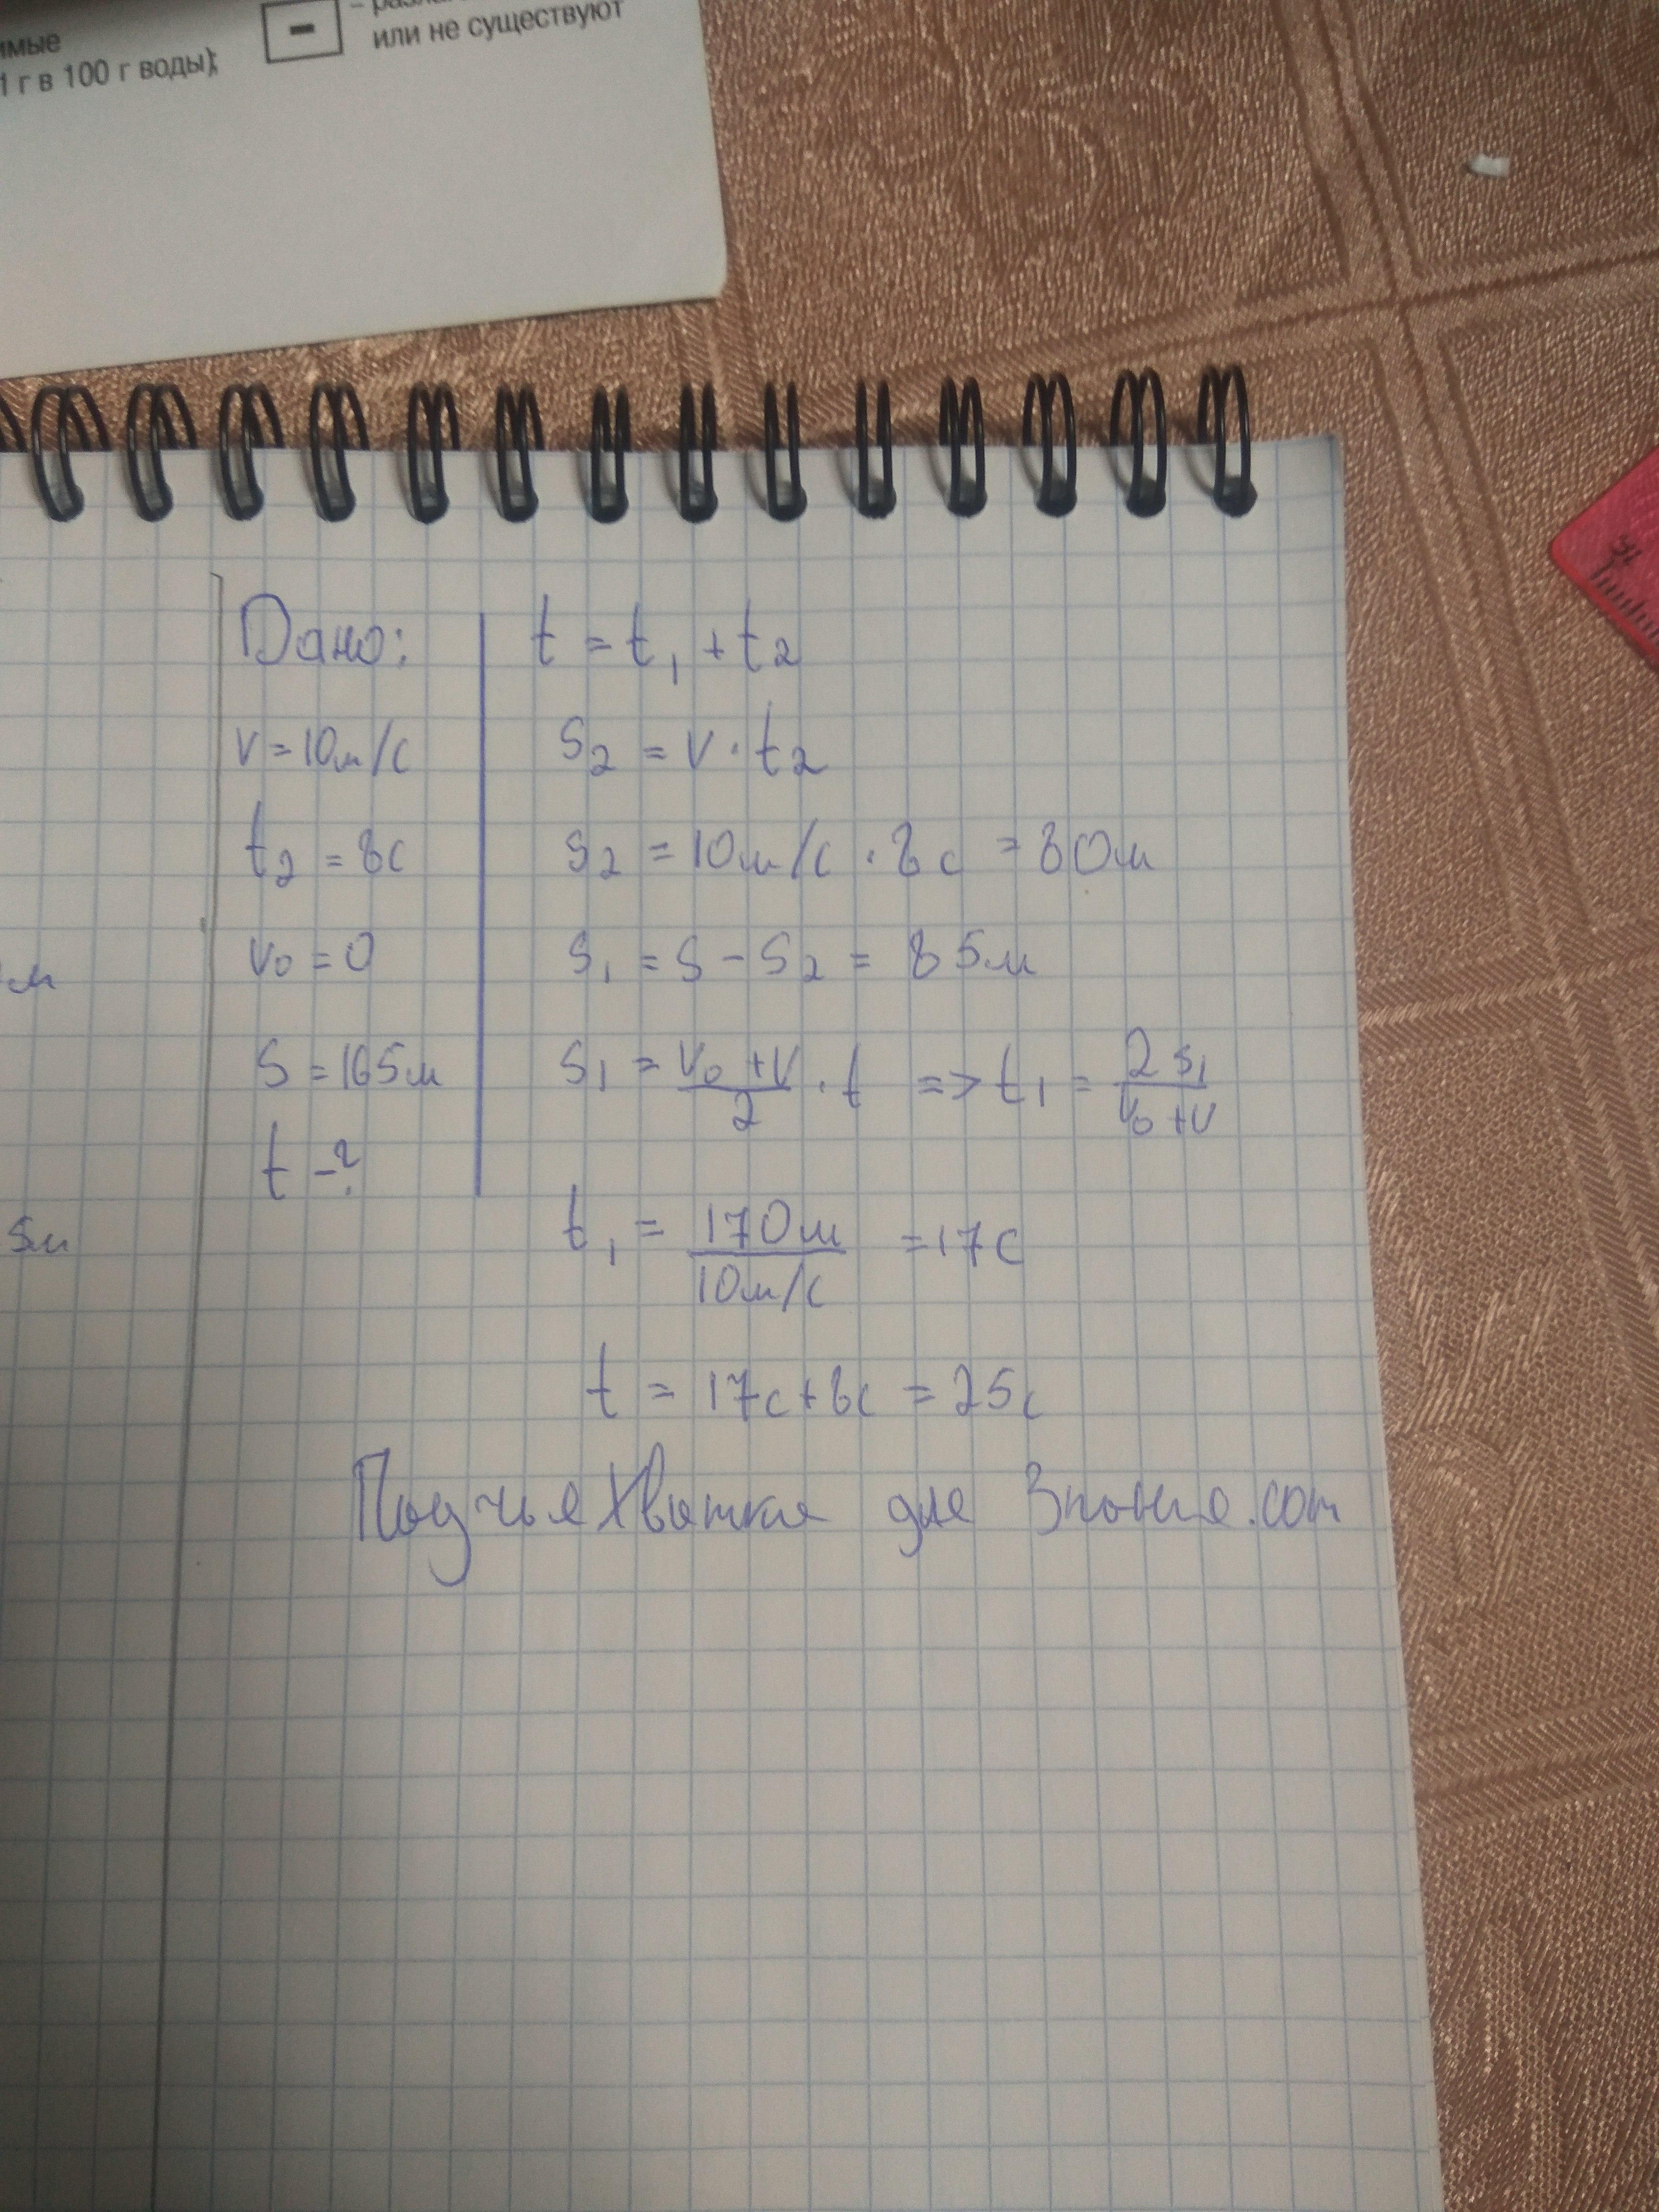 имые
1 г в 100 г воды);
-
или не существуют
Дано:
v = 10м/с
t₂ = 8с
v₀ = 0
S = 165м
t - ?
t = t₁ + t₂
S₂ = v · t₂
S₂ = 10м/с · 8с = 80м
S₁ = S - S₂ = 85м
S₁ = (v₀ + v)/2 · t => t₁ = 2S₁/(v₀ + v)
t₁ = 170м/10м/с = 17с
t = 17с + 8с = 25с
для Знания.com
м
5м